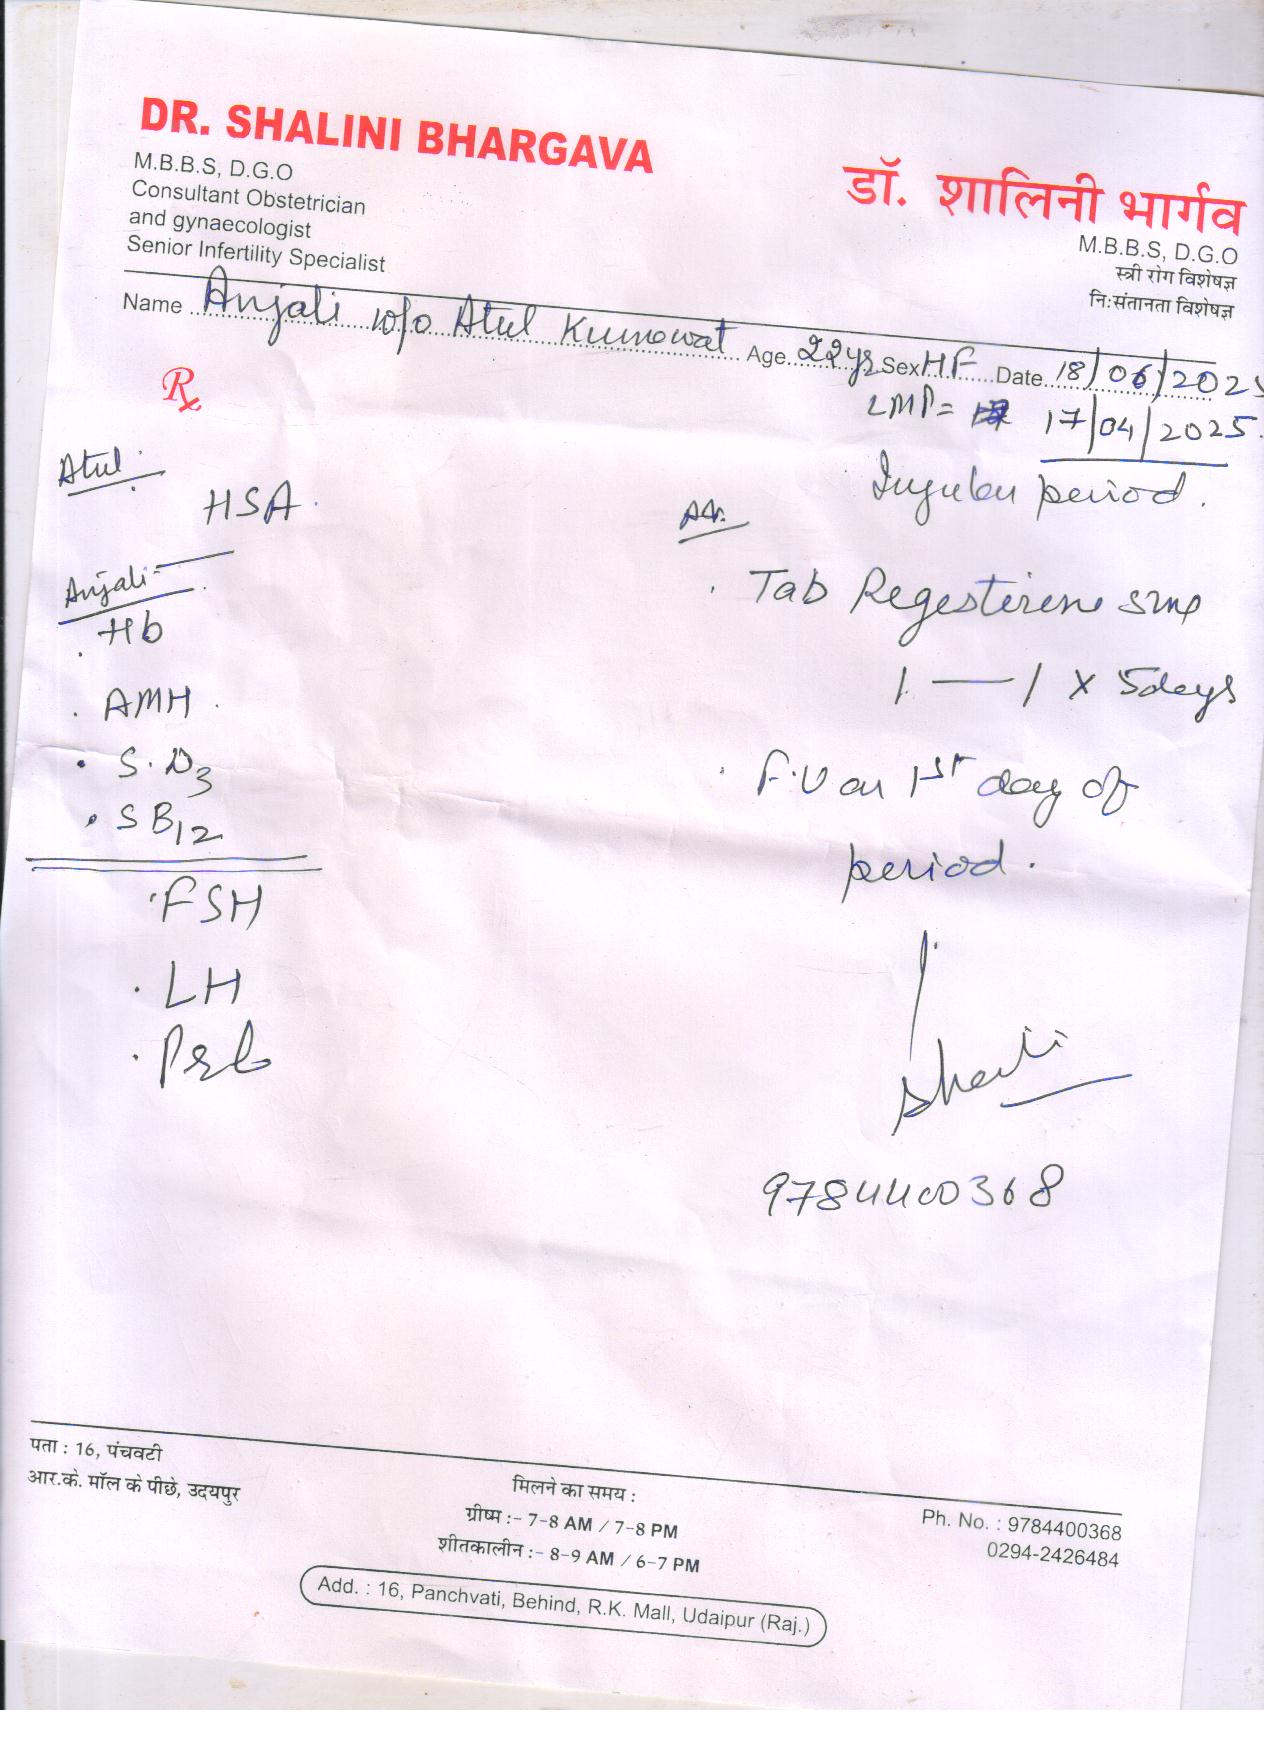 DR. SHALINI BHARGAVA
M.B.B.S, D.G.O
Consultant Obstetrician
and gynaecologist
Senior Infertility Specialist
डॉ. शालिनी भार्गव
M.B.B.S, D.G.O
स्त्री रोग विशेषज्ञ
नि:संतानता विशेषज्ञ
Name Anjali w/o Atul Kumawat Age 22yr Sex F Date 18/06/2025
LMP = 17/04/2025
Rx
period.
Atul
HSA
Anjali
Hb
AMH
S.D3
SB12
FSH
LH
Prl
Tab Regesterene 5mg
1 — 1 x 5days
F.U on 1st day of
period.
9784400368
पता : 16, पंचवटी
आर.के. मॉल के पीछे, उदयपुर
मिलने का समय :
ग्रीष्म :- 7-8 AM / 7-8 PM
शीतकालीन :- 8-9 AM / 6-7 PM
Ph. No. : 9784400368
0294-2426484
Add. : 16, Panchvati, Behind, R.K. Mall, Udaipur (Raj.)